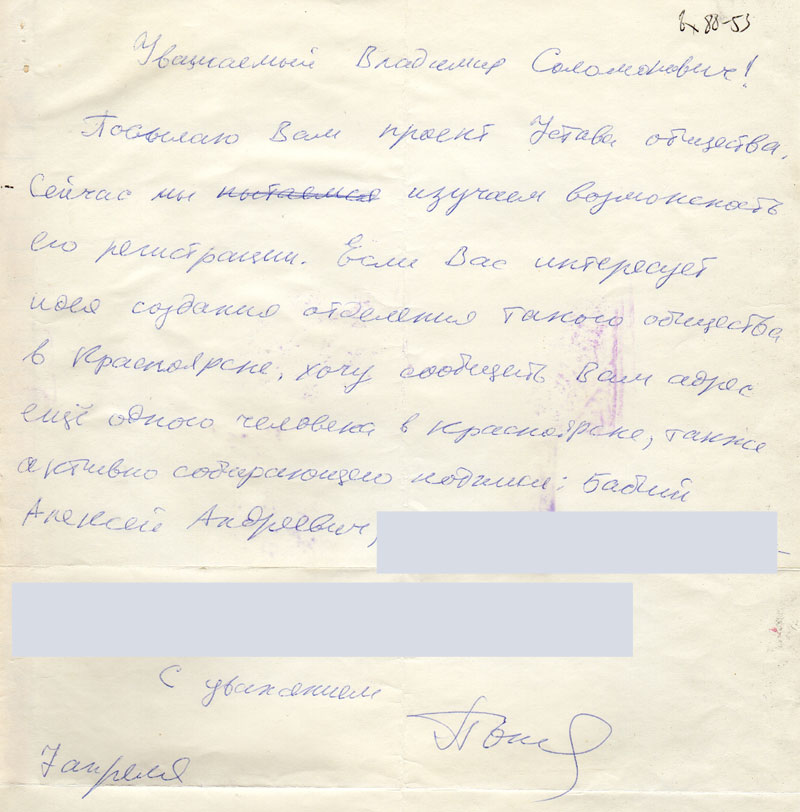 вх 88-53
Уважаемый Владимир Соломонович!
Посылаю Вам проект Устава общества.
Сейчас мы пытаемся изучаем возможность
его регистрации. Если Вас интересует
идея создания отделения такого общества
в Красноярске, хочу сообщить Вам адрес
ещё одного человека в Красноярске, также
активно собирающего подписи: Бабий
Алексей Андреевич,
С уважением
7 апреля